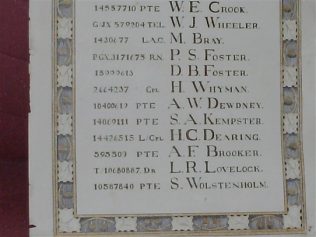 14557710 PTE W. E. CROOK.
G/JX 579904 TEL W. J. WHEELER.
1430677 L.A.C. M. BRAY.
P.GX.3171675 R.N. P. S. FOSTER.
D. B. FOSTER.
2664237 CPL H. WHYMAN.
10400619 PTE A. W. DEWDNEY.
14069111 PTE S. A. KEMPSTER.
14426515 L/CPL H. C. DEARING.
5953509 PTE A. F. BROOKER.
T/10680887 DR L. R. LOVELOCK.
10587840 PTE S. WOLSTENHOLM.